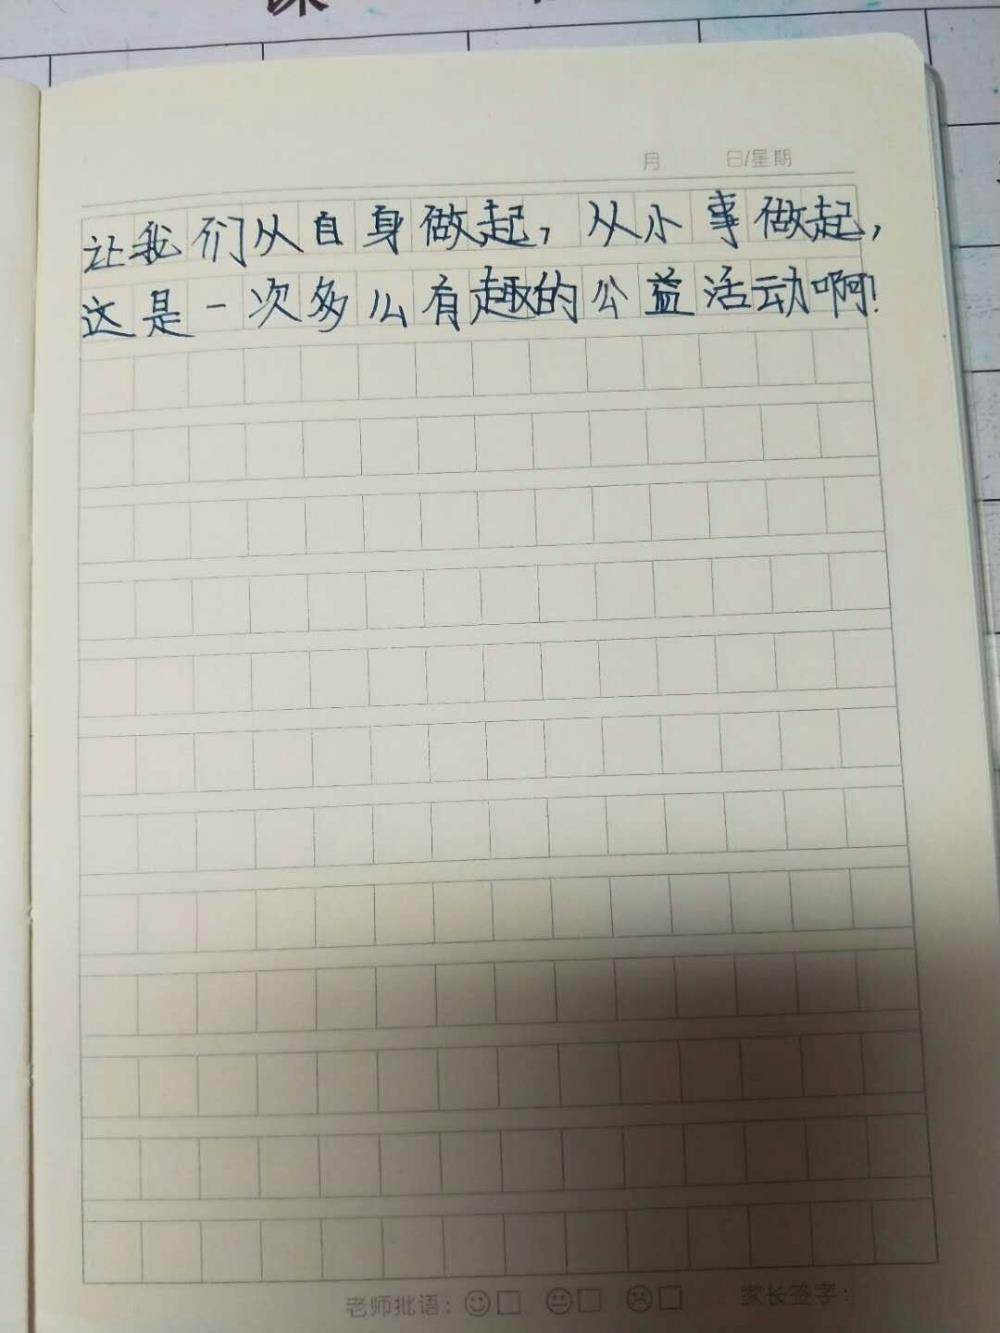 课
月 日/星期
让我们从自身做起，从小事做起，
这是一次多么有趣的公益活动啊！
老师批语： 家长签字：